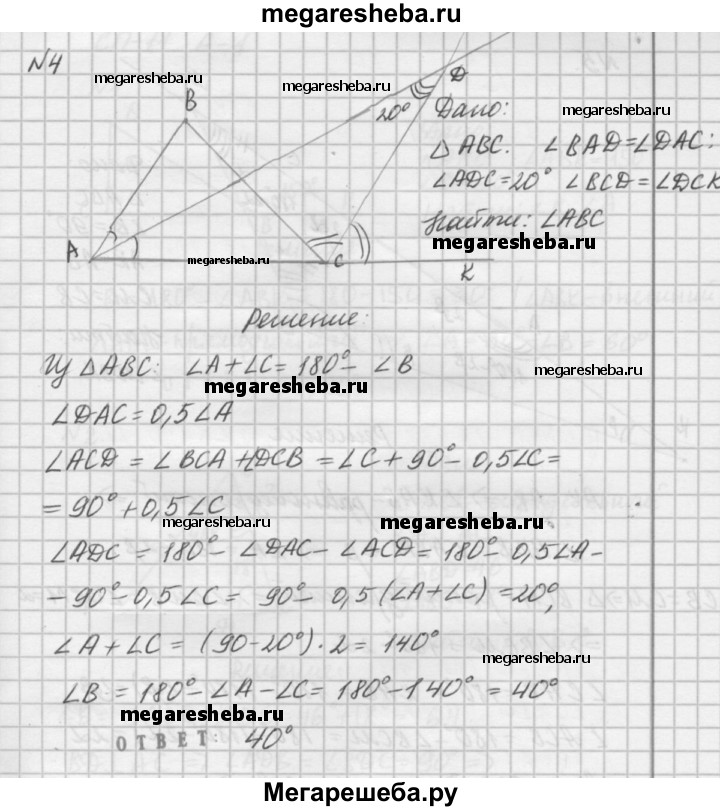 megaresheba.ru
N4
megaresheba.ru
megaresheba.ru
megaresheba.ru
B
D
20°
A
C
K
megaresheba.ru
Дано:
△ ABC. ∠BAD=∠DAC:
∠ADC=20° ∠BCD=∠DCK
Найти: ∠ABC
megaresheba.ru
Решение:
Из △ABC: ∠A+∠C=180°-∠B
megaresheba.ru
megaresheba.ru
∠DAC=0,5∠A
∠ACD = ∠BCA+∠DCB = ∠C+90°-0,5∠C=
=90°+0,5∠C
megaresheba.ru
megaresheba.ru
∠ADC = 180°-∠DAC-∠ACD=180°-0,5∠A-
-90°-0,5∠C= 90°-0,5(∠A+∠C)=20°,
∠A+∠C = (90-20°)·2=140°
megaresheba.ru
∠B = 180°-∠A-∠C=180°-140°=40°
megaresheba.ru
ОТВЕТ: 40°
Мегарешеба.ру